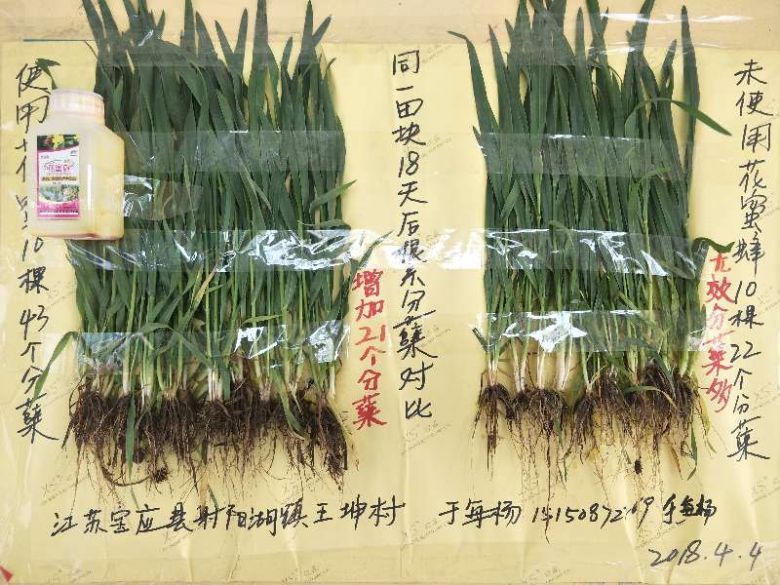 使用花
10棵43个分蘖
同一田块18天后根系分蘖对比
增加21个分蘖
未使用花蜜蜂10棵22个分蘖
无效分蘖多
江苏宝应县射阳湖镇王坤村
2018.4.4